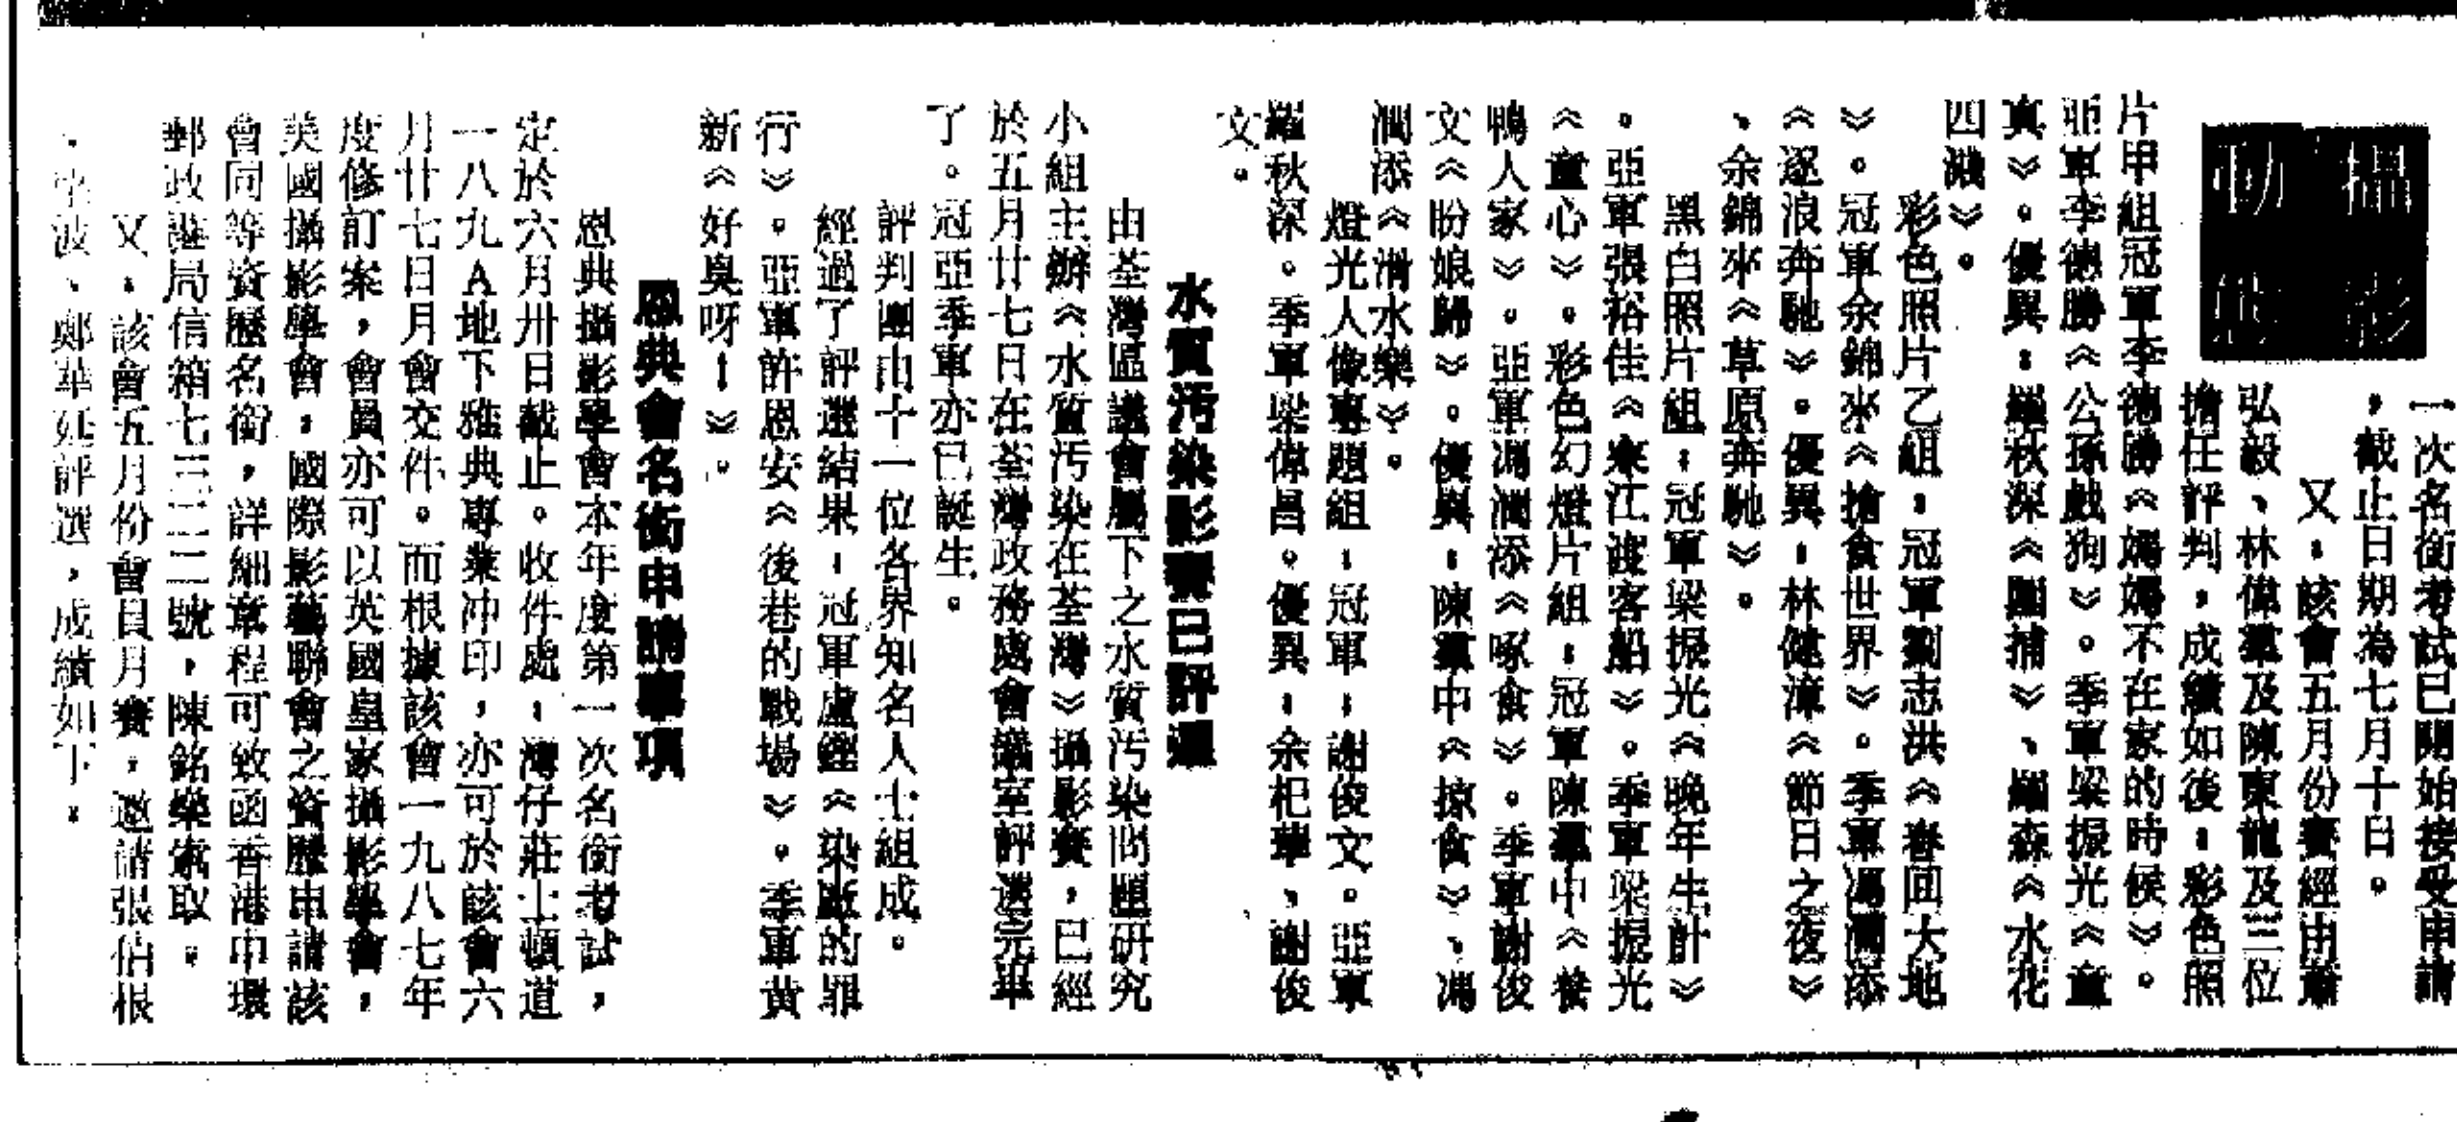 攝影
動態
一次名銜考試已開始接受申請
，截止日期為七月十日。
又：該會五月份賽經由蕭
弘毅、林偉華及陳東龍及三位
擔任評判，成績如後：彩色照
片甲組冠軍李德勝《媽媽不在家的時候》。
亞軍李德勝《公孫戲狗》。季軍梁振光《童
真》。優異：羅秋深《圍捕》、羅森《水花
四濺》。
彩色照片乙組：冠軍劉志洪《春回大地
》。冠軍余錦來《搶食世界》。季軍馮潤添
《逐浪奔馳》。優異：林健漳《節日之夜》
、余錦來《草原奔馳》。
黑白照片組：冠軍梁振光《晚年生計》
。亞軍張裕佳《來江渡客船》。季軍梁振光
《童心》。彩色幻燈片組：冠軍陳羣中《養
鴨人家》。亞軍馮潤添《啄食》。季軍謝俊
文《盼娘歸》。優異：陳羣中《掠食》、馮
潤添《滑水樂》。
燈光人像專題組：冠軍：謝俊文。亞軍
羅秋深。季軍梁偉昌。優異：余杞華、謝俊
文。
水質汚染影賽已評選
由荃灣區議會屬下之水質汚染問題研究
小組主辦《水質汚染在荃灣》攝影賽，已經
於五月廿七日在荃灣政務處會議室評選完畢
了。冠亞季軍亦已誕生。
評判團由十一位各界知名人士組成。
經過了評選結果：冠軍盧經《染廠的罪
行》。亞軍許恩安《後巷的戰場》。季軍黃
新《好臭呀！》。
恩典會名銜申請事項
恩典攝影學會本年度第一次名銜考試，
定於六月卅日截止。收件處：灣仔莊士頓道
一八九Ａ地下雅典專業沖印，亦可於該會六
月廿七日月會交件。而根據該會一九八七年
度修訂案，會員亦可以英國皇家攝影學會，
美國攝影學會，國際影藝聯會之資歷申請該
會同等資歷名銜，詳細章程可致函香港中環
郵政總局信箱七三二二號，陳銘樂索取。
又：該會五月份會員月賽，邀請張佰根
、　波、鄭華廷評選，成績如下：